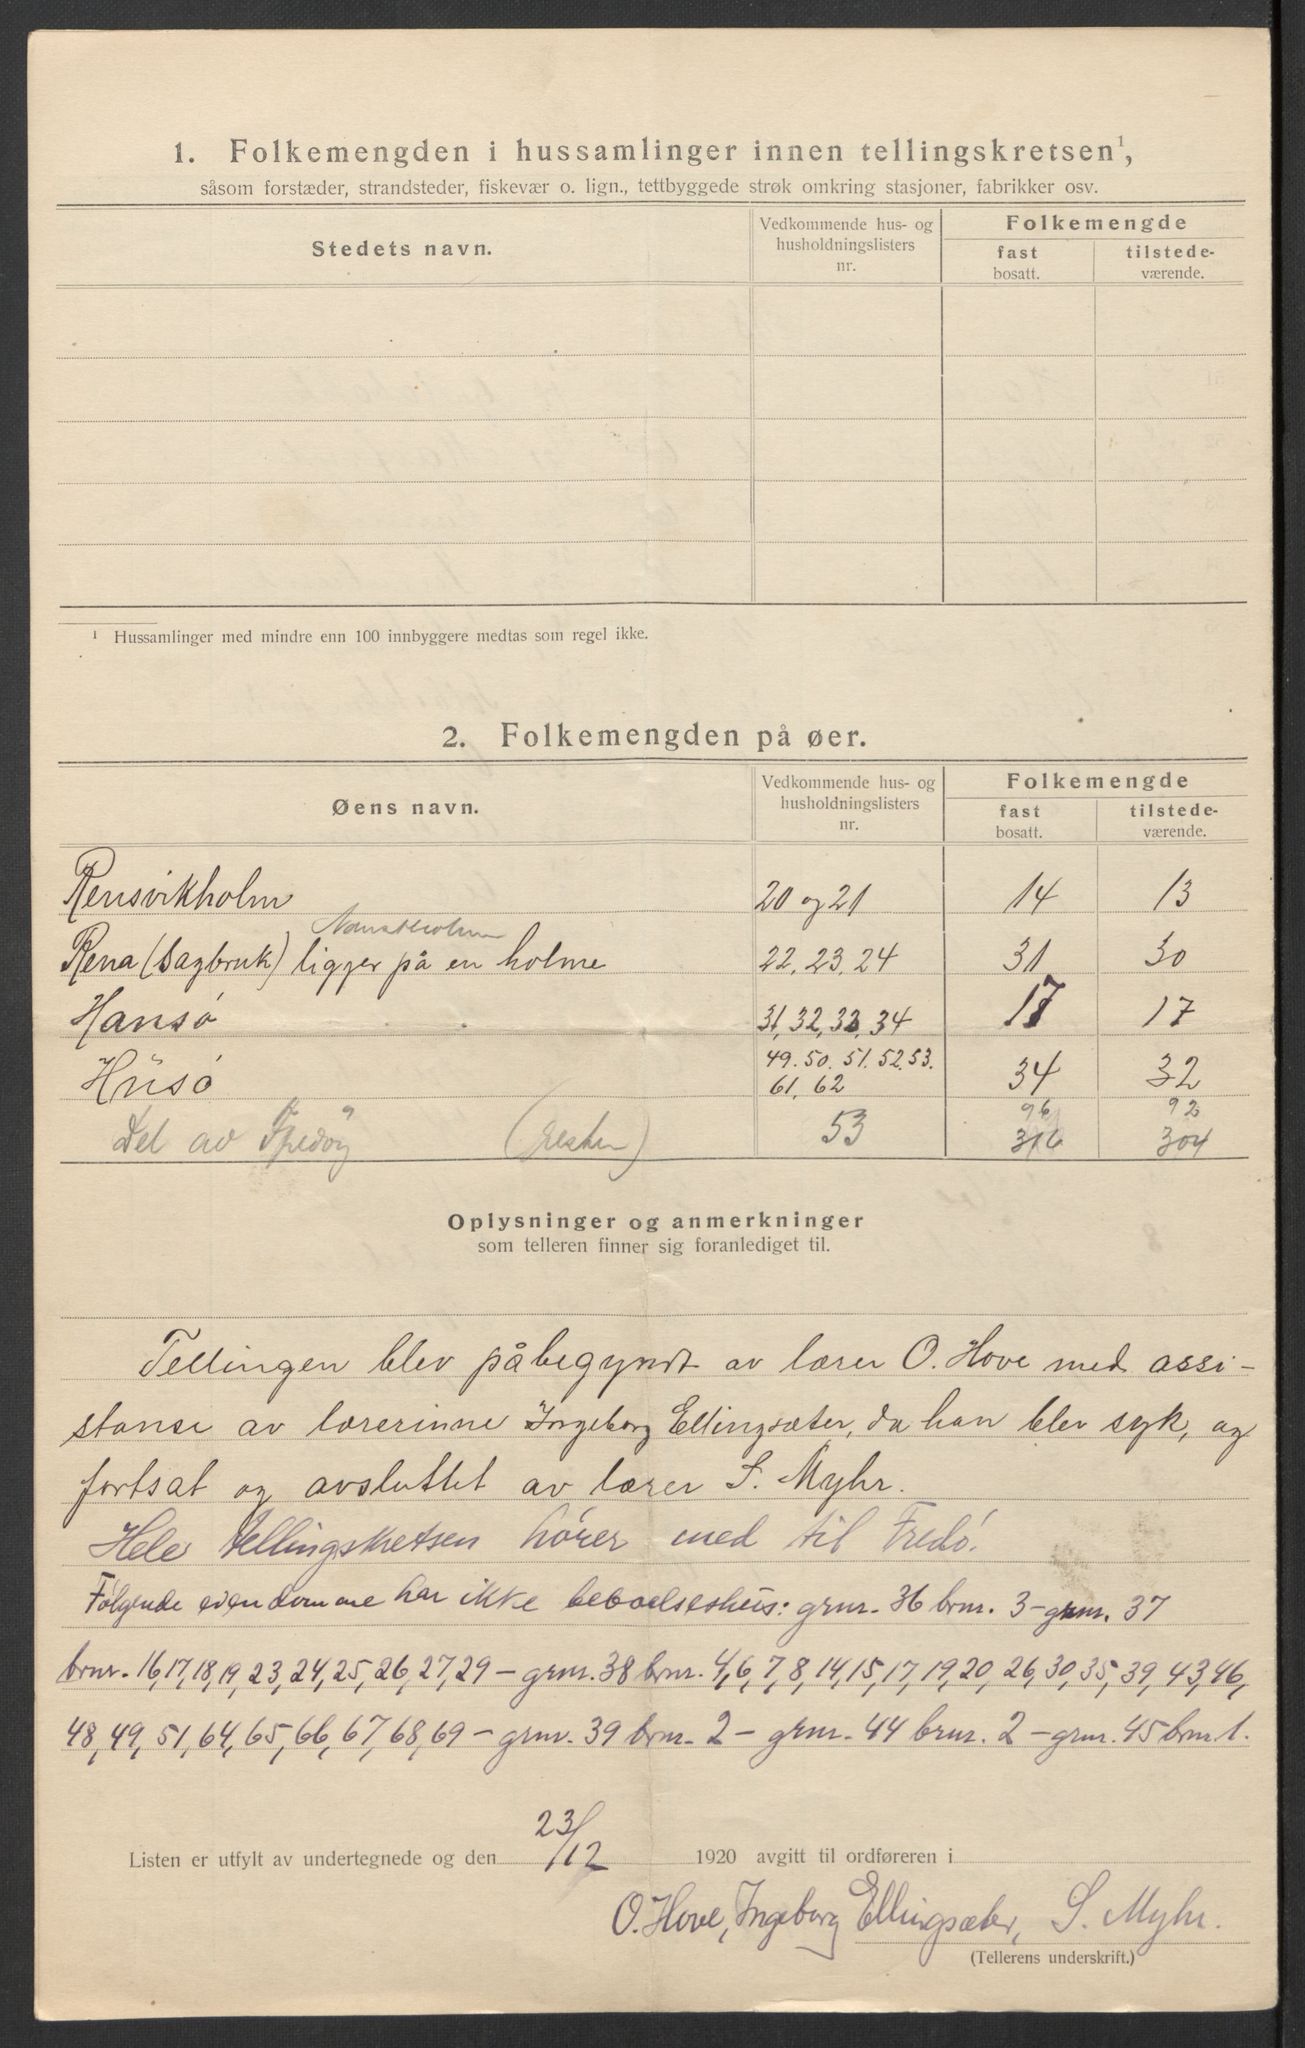 1. Folkemengden i hussamlinger innen tellingskretsen¹,
såsom forstæder, strandsteder, fiskevær o. lign., tettbyggede strøk omkring stasjoner, fabrikker osv.
Stedets navn.
Vedkommende hus- og
husholdningslisters
nr.
Folkemengde
fast
bosatt.
tilstede-
værende.
¹ Hussamlinger med mindre enn 100 innbyggere medtas som regel ikke.
2. Folkemengden på øer.
Øens navn.
Vedkommende hus- og
husholdningslisters
nr.
Folkemengde
fast
bosatt.
tilstede-
værende.
Rensvikholm 20 og 21 14 13
Rena (Sagbruk) ligger på en holme 22, 23, 24 31 30
Hansø 31, 32, 33, 34 17 17
Husø 49. 50. 51. 52. 53. 61, 62 34 32
96 92
Del av Fredøy (resten) 53 316 304
Oplysninger og anmerkninger
som telleren finner sig foranlediget til.
Tellingen blev påbegyndt av lærer O. Hove med assi-
stanse av lærerinne Ingeborg Ellingsæter, da han blev syk, og
fortsat og avsluttet av lærer S. Myhr.
Hele tellingskretsen hører med til Fredø.
Følgende eiendomme har ikke beboelseshus: grnr. 36 brnr. 3 - grnr. 37
brnr. 16, 17, 18, 19, 23, 24, 25, 26, 27, 29 - grnr. 38 brnr. 4, 6, 7, 8, 14, 15, 17, 19, 20, 26, 30, 35, 39, 43, 46,
48, 49, 51, 64, 65, 66, 67, 68, 69 - grnr. 39 brnr. 2 - grnr. 44 brnr. 2 - grnr. 45 brnr 1.
Listen er utfylt av undertegnede og den 23/12 1920 avgitt til ordføreren i
O. Hove, Ingeborg Ellingsæter, S. Myhr.
(Tellerens underskrift.)